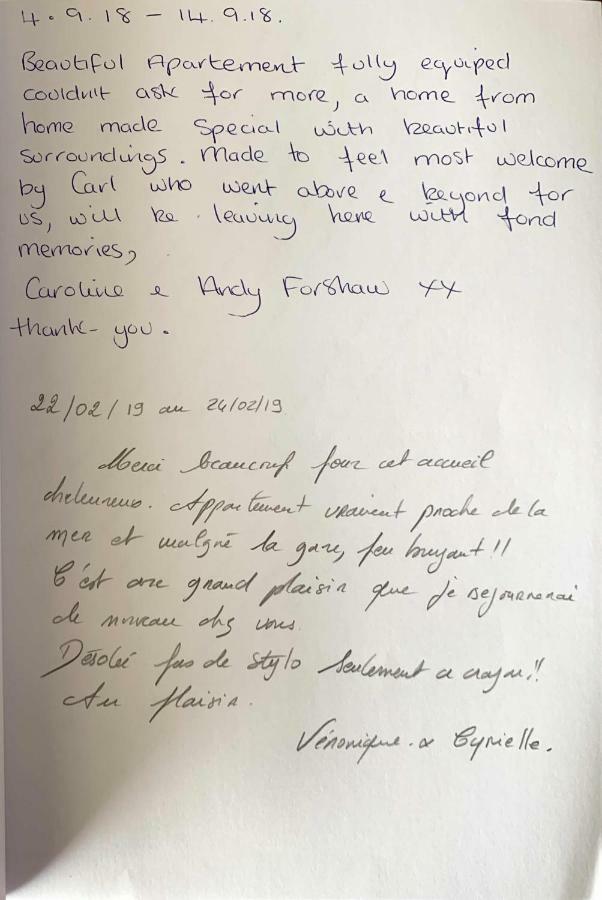 4.9.18 - 14.9.18.
Beautiful Apartement fully equiped
couldnt ask for more, a home from
home made special with beautiful
surroundings. Made to feel most welcome
by Carl who went above e beyond for
us, will be leaving here with fond
memories,
Caroline e Andy Forshaw xx
thank-you.
22/02/19 au 24/02/19
Merci beaucoup pour cet accueil
chaleureux. Appartement vraiment proche de la
mer et malgré la gare, peu bruyant!!
C'est avec grand plaisir que je sejournerai
de nouveau chez vous.
Désolée pas de stylo seulement a crayon!!
Au plaisir.
Véronique. & Cyrielle.